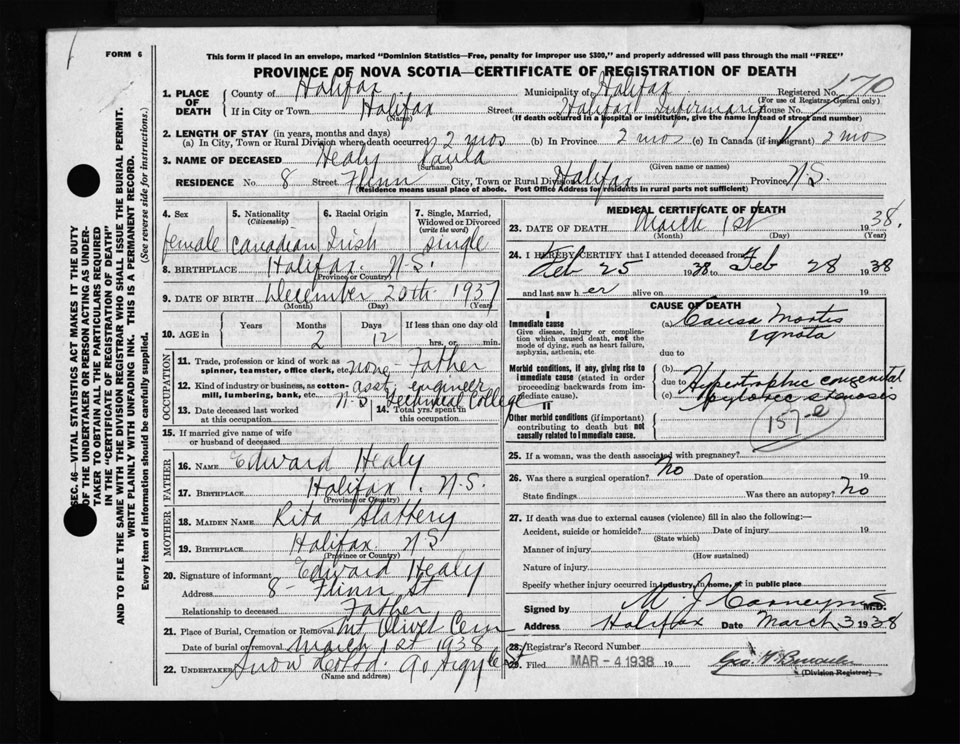 FORM 6
This form if placed in an envelope, marked "Dominion Statistics—Free, penalty for improper use $300," and properly addressed will pass through the mail "FREE"
PROVINCE OF NOVA SCOTIA—CERTIFICATE OF REGISTRATION OF DEATH
SEC. 46 — VITAL STATISTICS ACT MAKES IT THE DUTY
OF THE UNDERTAKER OR PERSON ACTING AS UNDER-
TAKER TO OBTAIN ALL THE PARTICULARS REQUIRED
IN THE "CERTIFICATE OF REGISTRATION OF DEATH"
AND TO FILE THE SAME WITH THE DIVISION REGISTRAR WHO SHALL ISSUE THE BURIAL PERMIT.
WRITE PLAINLY WITH UNFADING INK. THIS IS A PERMANENT RECORD.
Every item of information should be carefully supplied. (See reverse side for instructions.)
1. PLACE OF DEATH County of Halifax Municipality of Halifax Registered No. 170
(For use of Registrar General only)
If in City or Town Halifax Street Halifax Infirmary House No.
(Name) (If death occurred in a hospital or institution, give the name instead of street and number)
2. LENGTH OF STAY (in years, months and days)
(a) In City, Town or Rural Division where death occurred 2 mos (b) In Province 2 mos (c) In Canada (if immigrant) 2 mos
3. NAME OF DECEASED Healy Paula
(Surname) (Given name or names)
RESIDENCE No. 8 Street Flinn City, Town or Rural Division Halifax Province N.S.
(Residence means usual place of abode. Post Office Address for residents in rural parts not sufficient)
4. Sex female
5. Nationality (Citizenship) Canadian
6. Racial Origin Irish
7. Single, Married, Widowed or Divorced (write the word) single
8. BIRTHPLACE Halifax N.S.
(Province or Country)
9. DATE OF BIRTH December 20th 1937
(Month) (Day) (Year)
10. AGE in Years Months 2 Days 12 If less than one day old hrs. or min.
OCCUPATION
11. Trade, profession or kind of work as spinner, teamster, office clerk, etc. none - Father
12. Kind of industry or business, as cotton-mill, lumbering, bank, etc. asst. engineer
N.S. Technical College
13. Date deceased last worked at this occupation
14. Total yrs. spent in this occupation
15. If married give name of wife or husband of deceased
FATHER
16. NAME Edward Healy
17. BIRTHPLACE Halifax. N.S.
(Province or Country)
MOTHER
18. MAIDEN NAME Rita Slattery
19. BIRTHPLACE Halifax N S
(Province or Country)
20. Signature of informant Edward Healy
Address 8 - Flinn St
Relationship to deceased Father
21. Place of Burial, Cremation or Removal Mt Olivet Cem
Date of burial or removal March 1st 1938
22. UNDERTAKER Snow & Co Ltd. 90 Argyle St
(Name and address)
MEDICAL CERTIFICATE OF DEATH
23. DATE OF DEATH March 1st 1938.
(Month) (Day) (Year)
24. I HEREBY CERTIFY that I attended deceased from
Feb 25 1938 to Feb 28 1938
and last saw h er alive on 19
CAUSE OF DEATH
I
Immediate cause
Give disease, injury or complication which caused death, not the mode of dying, such as heart failure, asphyxia, asthenia, etc.
(a) Causa Mortis
ignota
due to
Morbid conditions, if any, giving rise to immediate cause (stated in order proceeding backwards from immediate cause)
(b)
due to Hypertrophic congenital
(c) pyloric stenosis
II
Other morbid conditions (if important) contributing to death but not causally related to immediate cause.
157-e
25. If a woman, was the death associated with pregnancy?
26. Was there a surgical operation? No Date of operation 19
State findings Was there an autopsy? No
27. If death was due to external causes (violence) fill in also the following:—
Accident, suicide or homicide? Date of injury 19
(State which)
Manner of injury
(How sustained)
Nature of injury
Specify whether injury occurred in industry, in home, or in public place
Signed by M. J. Carney M.D.
Address Halifax Date March 3 1938
28. Registrar's Record Number
29. Filed MAR - 4 1938 19
(Division Registrar)